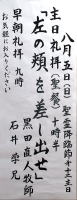 八月五日(日)(聖霊降臨節十二主日)
主日礼拝(聖餐)十時半
「左の頬を差し出せ」
黒田直人牧師
早朝礼拝 九時
石井学兄
お気軽にお入りください